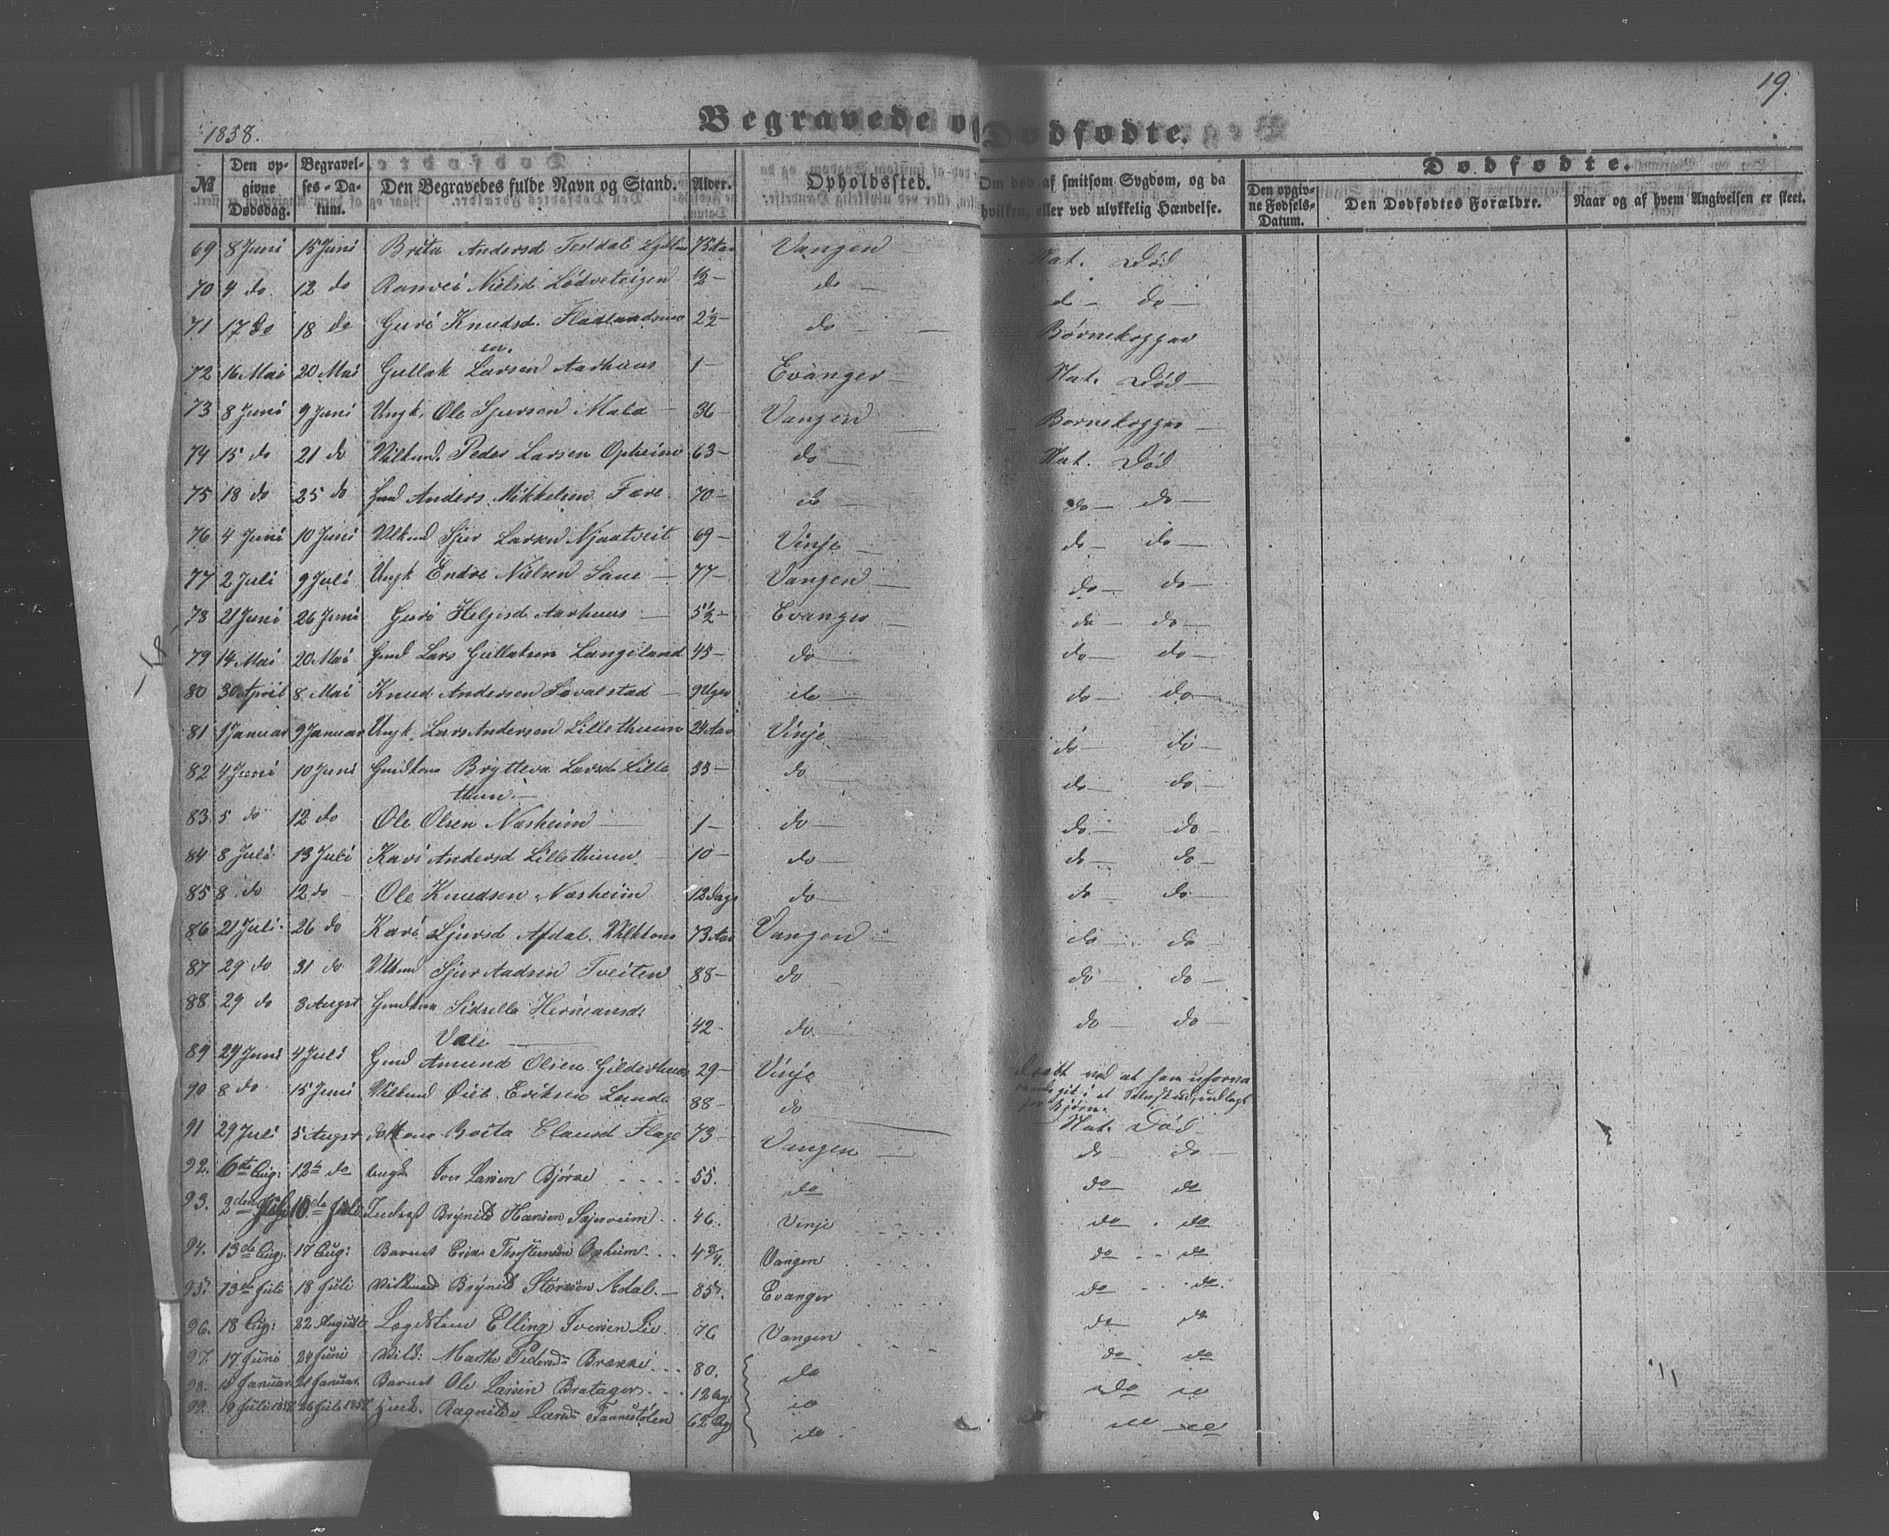 19.
1838.
Begravede og Dødfødte.
Dødfødte.
№ Den opgivne Dødsdag. Begravelses-Datum. Den Begravedes fulde Navn og Stand. Alder. Opholdssted. Om død af smitsom Sygdom, og da hvilken, eller ved ulykkelig Hændelse. Den opgivne Fødsels-Datum. Den Dødfødtes Forældre. Naar og af hvem Angivelsen er skeet.
69 8 Juni 15 Juni Brita Andersd Vangen Nat. Død
70 4 do 12 do Ranvei Nielsd Lødveteigen ½ — do — d — do —
71 17 do 18 do Guri Knudsd. Fladlandsmo 2½ — do — Børnekopper
en.
72 16 Mai 20 Mai Gullak Larsen Aarhuus 1 — Evanger — Nat. Død —
73 8 Juni 9 Juni Ungk. Ole Sjursen 36 — Vangen — Børnekopper —
74 15 do 21 do Vilkmd. Peder Larsen Opheim 63 — do — Nat. Død
75 18 do 25 do Gmd Anders Mikkelsen Fære 70 — do do — do —
76 4 Juni 10 Juni Vilkmd Sjur Larsen Njaatveit 69 — Vinje — do — do —
77 2 Juli 9 Juli Ungk Endre Nielsen Saue — 77 — Vangen — do — do —
78 21 Juni 26 Juni Guri Helgesd Aarhuus — 5½ — Evanger — do — do —
79 14 Mai 20 Mai Gmd Lars Gullaksen Langeland 45 — do — do — do —
80 30 April 8 Mai Knud Andersen — 9 Uger do do — do —
81 1 Januar 9 Januar Ungk. Lars Andersen Lillethuun 24 Aar Vinje do — do —
82 4 Juni 10 Juni Gmdkone Brytteva Larsd Lille 33 — do do — do —
thun —
83 5 do 12 do Ole Olsen Næsheim — 1 — do — do — do —
84 8 Juli 13 Juli Kari Andersd Lillethuun 10 — do — do — do —
85 8 do 12 do — Ole Knudsen Næsheim 12 Dage do do do —
86 21 Juli 26 do Kari Sjursd Afdal. Vilkkone 73 Aar Vangen do — do —
87 29 do 31 do Vilkmd Sjur Aadsen Tveiten 88 — do do do —
88 29 do 3 Augst Gmdkone Sidselle Hermansd: 42 — do — do — do —
—
89 29 Juni 4 Juli Gmd Amund Olsen Gilderhuus 29 — Vinje dræbt ved at han uforva
rende git i et Selvskud, udlagt
for Bjørn.
90 8 do 15 Juni Vilkmd Eriksen Lunde 88 — do Nat. Død
91 29 Juli 5 Augst do Kone Brita Clausd Flage 73 — Vangen — do — do —
92. 6te Aug: 12te do ungk Iver Larsen Bjørke 55. do do do
93. Juli Brynild Hansen 46. Vinje do do
94. 13de Aug: 17 Aug: Barnet Erik Thorsteinsen Opheim 4¾. Vangen do do
95. 13de Juli 18 Juli Vilkmand Brynild Størksen — 85. Evanger do do.
96. 18 Aug: 22 August Lægdslem Elling Iversen Lie. 76 Vangen do do
97. 17 Juni 24 Juni Marthe Pedersd: Brække. 80. do do do
98. Januar 21 Januar. Barnet Ole Larsen Bratager. 12 do do do
99. 19 Juli 26 Juli Ragnilde Larsd: 62 do. do do